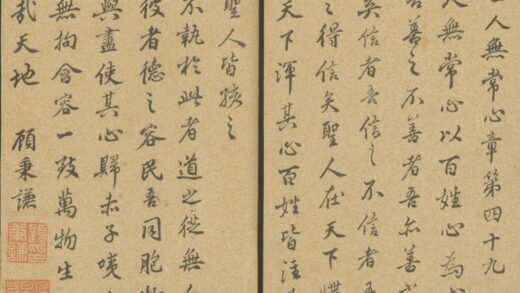 人無常心章第四十九
人無常心以百姓心為
吾善之不善者吾亦善
矣信者吾信之不信者吾
之得信矣聖人在天下惵
天下渾其心百姓皆注
聖人皆孩之
不執於此者道之從無
彼者德之容民吾同胞物
與盡使其心歸赤子咦
無拘含容一致萬物生
哉天地 顧秉謙